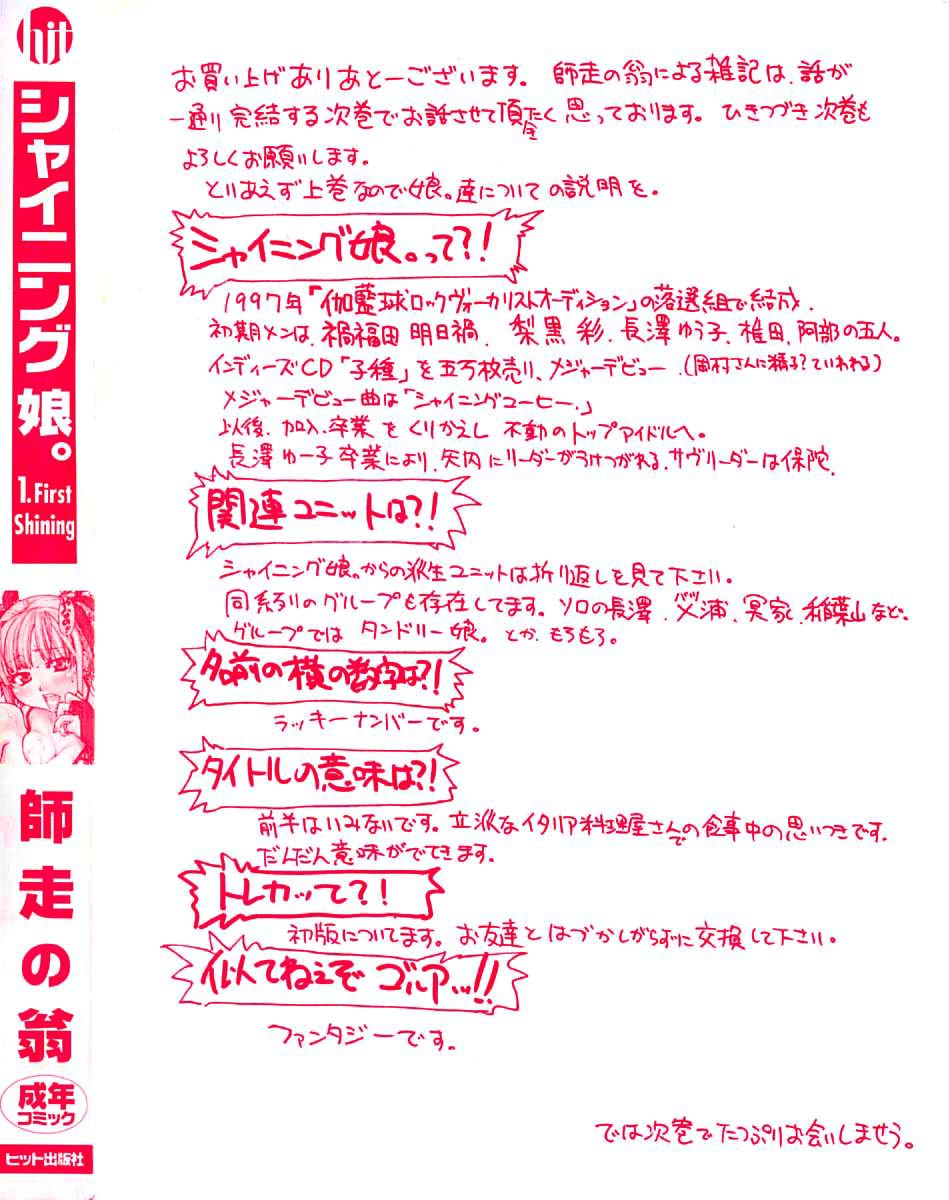 hit
シャイニング娘。
1.First
Shining
師走の翁
成年
コミック
ヒット出版社
お買い上げありあとーございます。 師走の翁による雑記は、話が
一通り完結する次巻でお話させて頂きたく思っております。 ひきつづき次巻も
よろしくお願いします。
とりあえず上巻なので娘。達についての説明を。
シャイニング娘。って?!
1997年「伽藍球ロックヴォーカリストオーディション」の落選組で結成.
初期メンは、禍福田 明日禍、 梨黒 彩、長澤ゆう子、椎田、阿部の五人。
インディーズCD「子種」を五万枚売り、メジャーデビュー.(岡村さんに精子?ていわれる)
メジャーデビュー曲は「シャイニングコーヒー.」
以後、加入、卒業をくりかえし 不動のトップアイドルへ。
長澤ゆー子卒業により、矢内にリーダーがうけつがれる、サヴリーダーは保陀.
関連ユニットは?!
シャイニング娘。からの派生ユニットは折り返しを見て下さい。
同系列のグループも存在してます。ソロの長澤、父浦、冥家、稲葉山など。
グループでは タンドリー娘。とか、もろもろ。
名前の横の数字は?!
ラッキーナンバーです。
タイトルの意味は?!
前半はいみないです。立派なイタリア料理屋さんでの食事中の思いつきです.
だんだん意味がでてきます.
トレカッて?!
初版についてます。お友達とはづかしがらずに交換して下さい。
似てねぇぞ ゴルアッ!!
ファンタジーです。
では次巻でたっぷりお会いしませう。